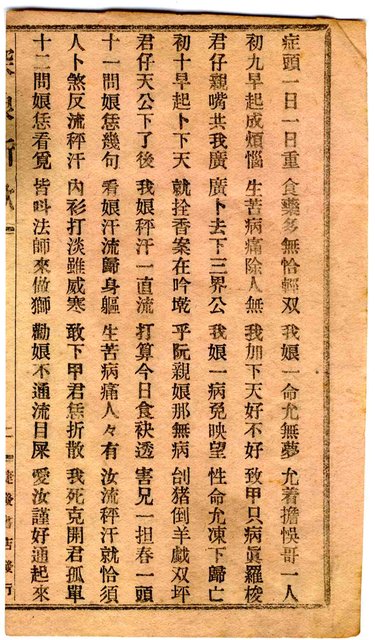 症頭一日一日重 食藥多無恰輕双 我娘一命尤無夢 尤着擔悞哥一人
初九早起成煩惱 生苦病痛除人無 我加下天好不好 致甲只病眞羅梭
君仔親嘴共我廣 廣卜去下三界公 我娘一病免映望 性命尤凍下歸亡
初十早起卜下天 就拴香案在吟墘 乎阮親娘那無病 刣猪倒羊戯双坪
君仔天公下了後 我娘秤汗一直流 打算今日食袂透 害兄一担春一頭
十一問娘恁幾句 看娘汗流歸身軀 生苦病痛人々有 汝流秤汗就恰須
人卜煞反流秤汗 內衫打淡雖威寒 敢下甲君恁折散 我死克開君孤單
十二問娘恁看覓 皆呌法師來做獅 勸娘不通流目屎 愛汝謹好通起來